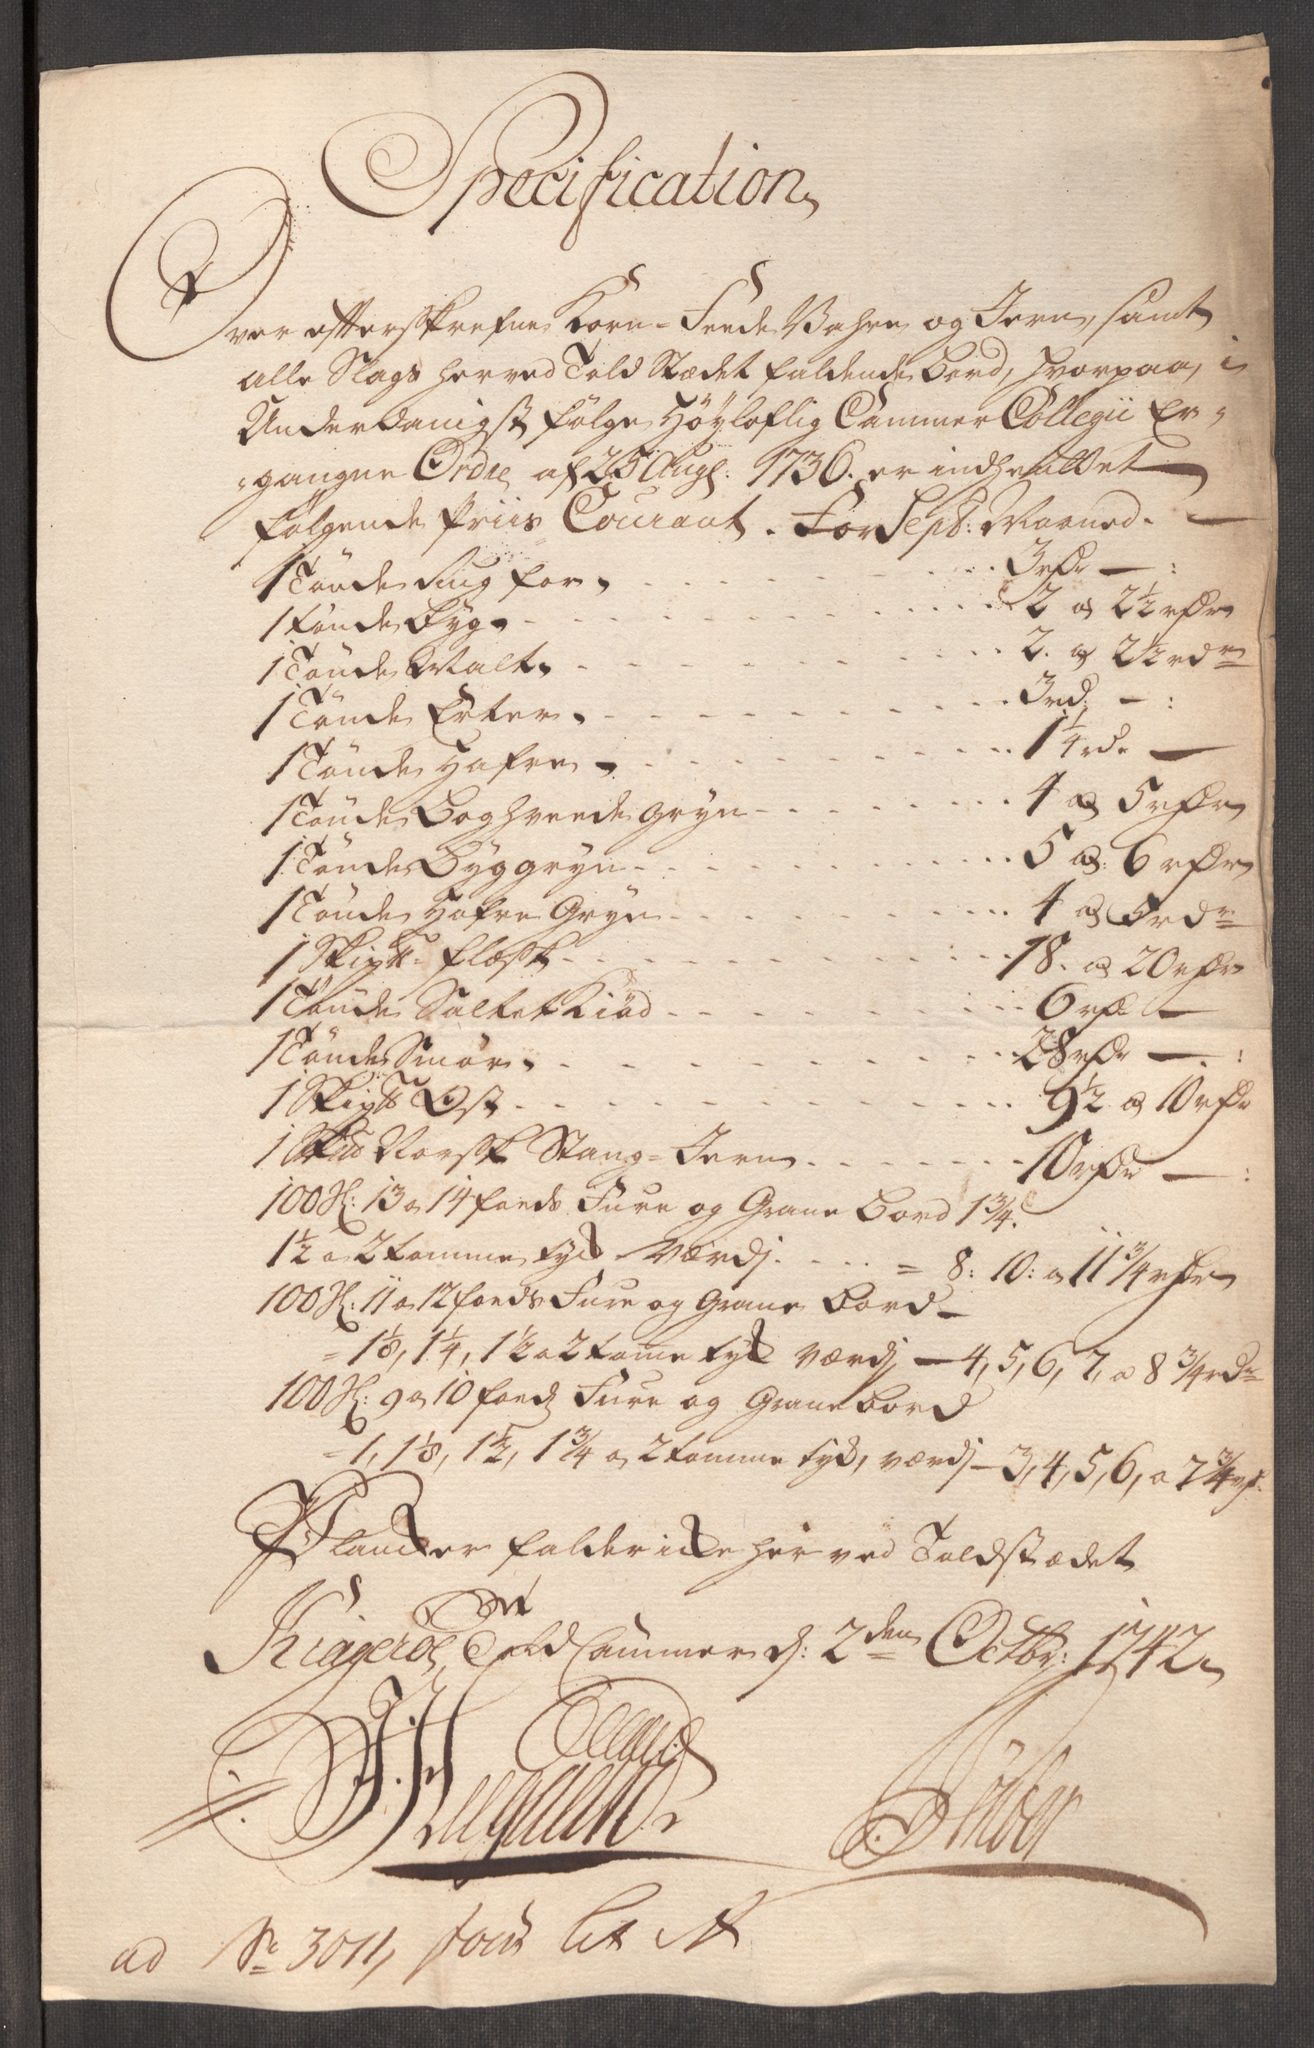 Specification
Over effterskrefne Korn- Feede Vahre og Jern, samt
alle Slags her ved Told Stædet faldende Bord, hvorpaa, i
Underdanigst følge Høylofflig Cammer Collegii Er-
gangne Ordre af 25 Augt: 1736. er indhentet
følgende Priis Courant. For Sept: Maaned.
1 Tønde Rug for 3 rdr
1 Tønde Byg 2 a 2 1/2 rdr
1 Tønde Malt 2. a 2 1/2 rdr
1 Tønde Erter 3 rd:
1 Tønde Hafre 1 1/4 rd.
1 Tønde Boghveede gryn 4 a 5 rdr
1 Tønde Byggryn 5 a 6 rdr
1 Tønde Hafre Gryn 4 a 5 rdr
1 Skipd: Flæsk 18. a 20 rdr
1 Tønde Saltet Kiød 6 rd
1 Tønde Smør 28 rdr
1 Skipd Ost 9 1/2 a 10 rdr
1 Skpd Norsk Stang-Jern 10 rdr
100 St: 13 a 14 foeds Fure og Grane Bord 1 3/4.
1 1/2 a 2 tomme tyk Værdj. = 8: 10: a 11 3/4 rdr
100 St: 11 a 12 foeds Fure og Grane Bord
= 1 1/8, 1 1/4, 1 1/2 a 2 tomme tyk værdj 4, 5, 6, 7, a 8 3/4 rdr
100 St: 9 a 10 foeds Fure og Grane Bord
= 1, 1 1/8, 1 1/2, 1 3/4 a 2 tomme tyk, værdj 3, 4, 5, 6, a 7 3/4 rd.
Plancker falder icke her ved Toldstædet
Kragerøe Told Cammer d: 2den Octbr: 1742.
ad No 3011,